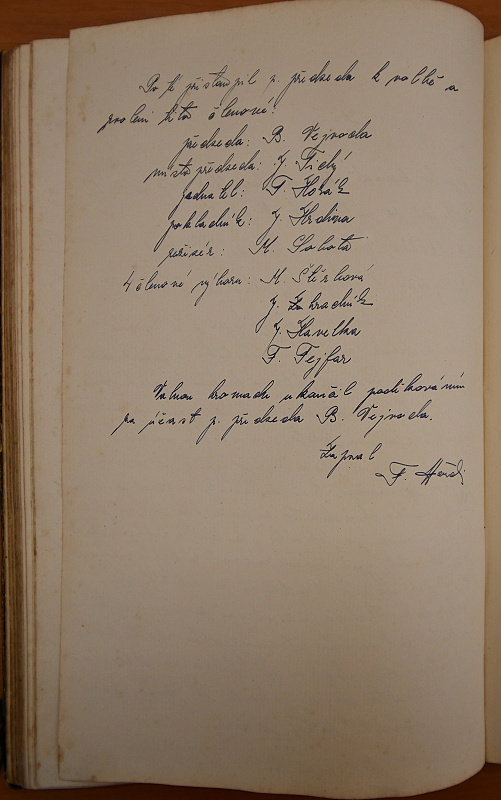 Pak přistoupil p. předseda k volbě a
zvoleni tito členové:
předseda: B. Vejvoda
místopředseda: J. Tichý
jednatel: F. Horák
pokladník: J. Hrdina
režisér: M. Sobota
4 členové výboru: M. Štěrbová
J. Zahradník
J. Havelka
F. Fejfar
Valnou hromadu ukončil poděkováním
za účast p. předseda B. Vejvoda.
Zapsal
F.